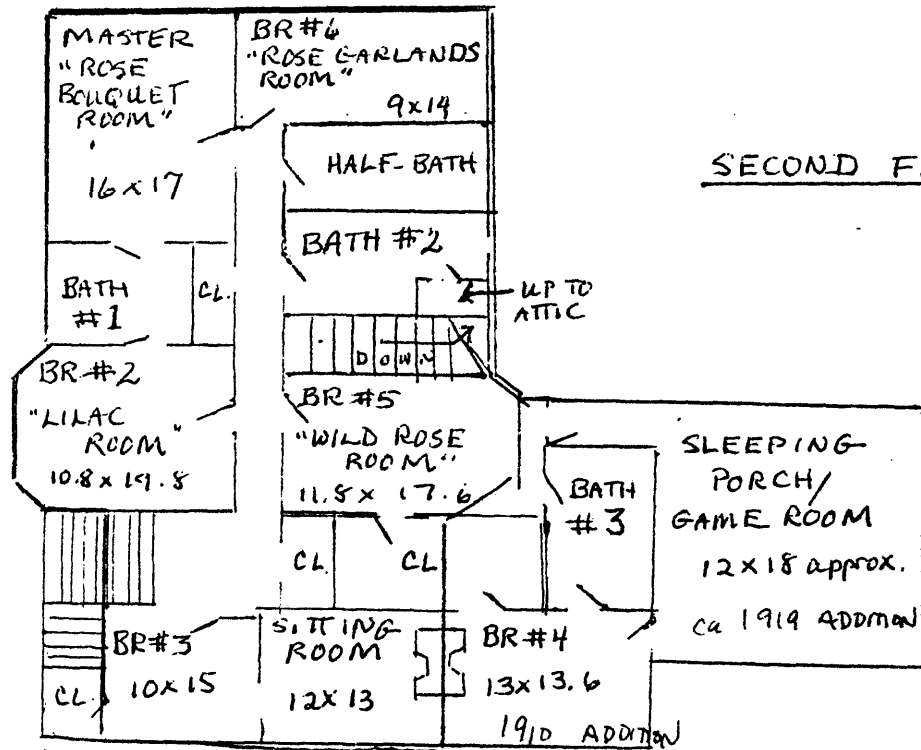 MASTER
"ROSE
BOUQUET
ROOM"
16 x 17
BR #6
"ROSE GARLANDS
ROOM"
9x14
HALF-BATH
SECOND F
BATH #2
UP TO
ATTIC
BATH
#1
CL.
DOWN
BR #2
"LILAC
ROOM"
10.8 x 19.8
BR #5
"WILD ROSE
ROOM"
11.8 x 17.6
BATH
#3
SLEEPING
PORCH/
GAME ROOM
12 x 18 approx.
ca 1919 ADDITION
CL
CL
BR #3
10x15
CL.
SITTING
ROOM
12x13
BR #4
13x13.6
1910 ADDITION